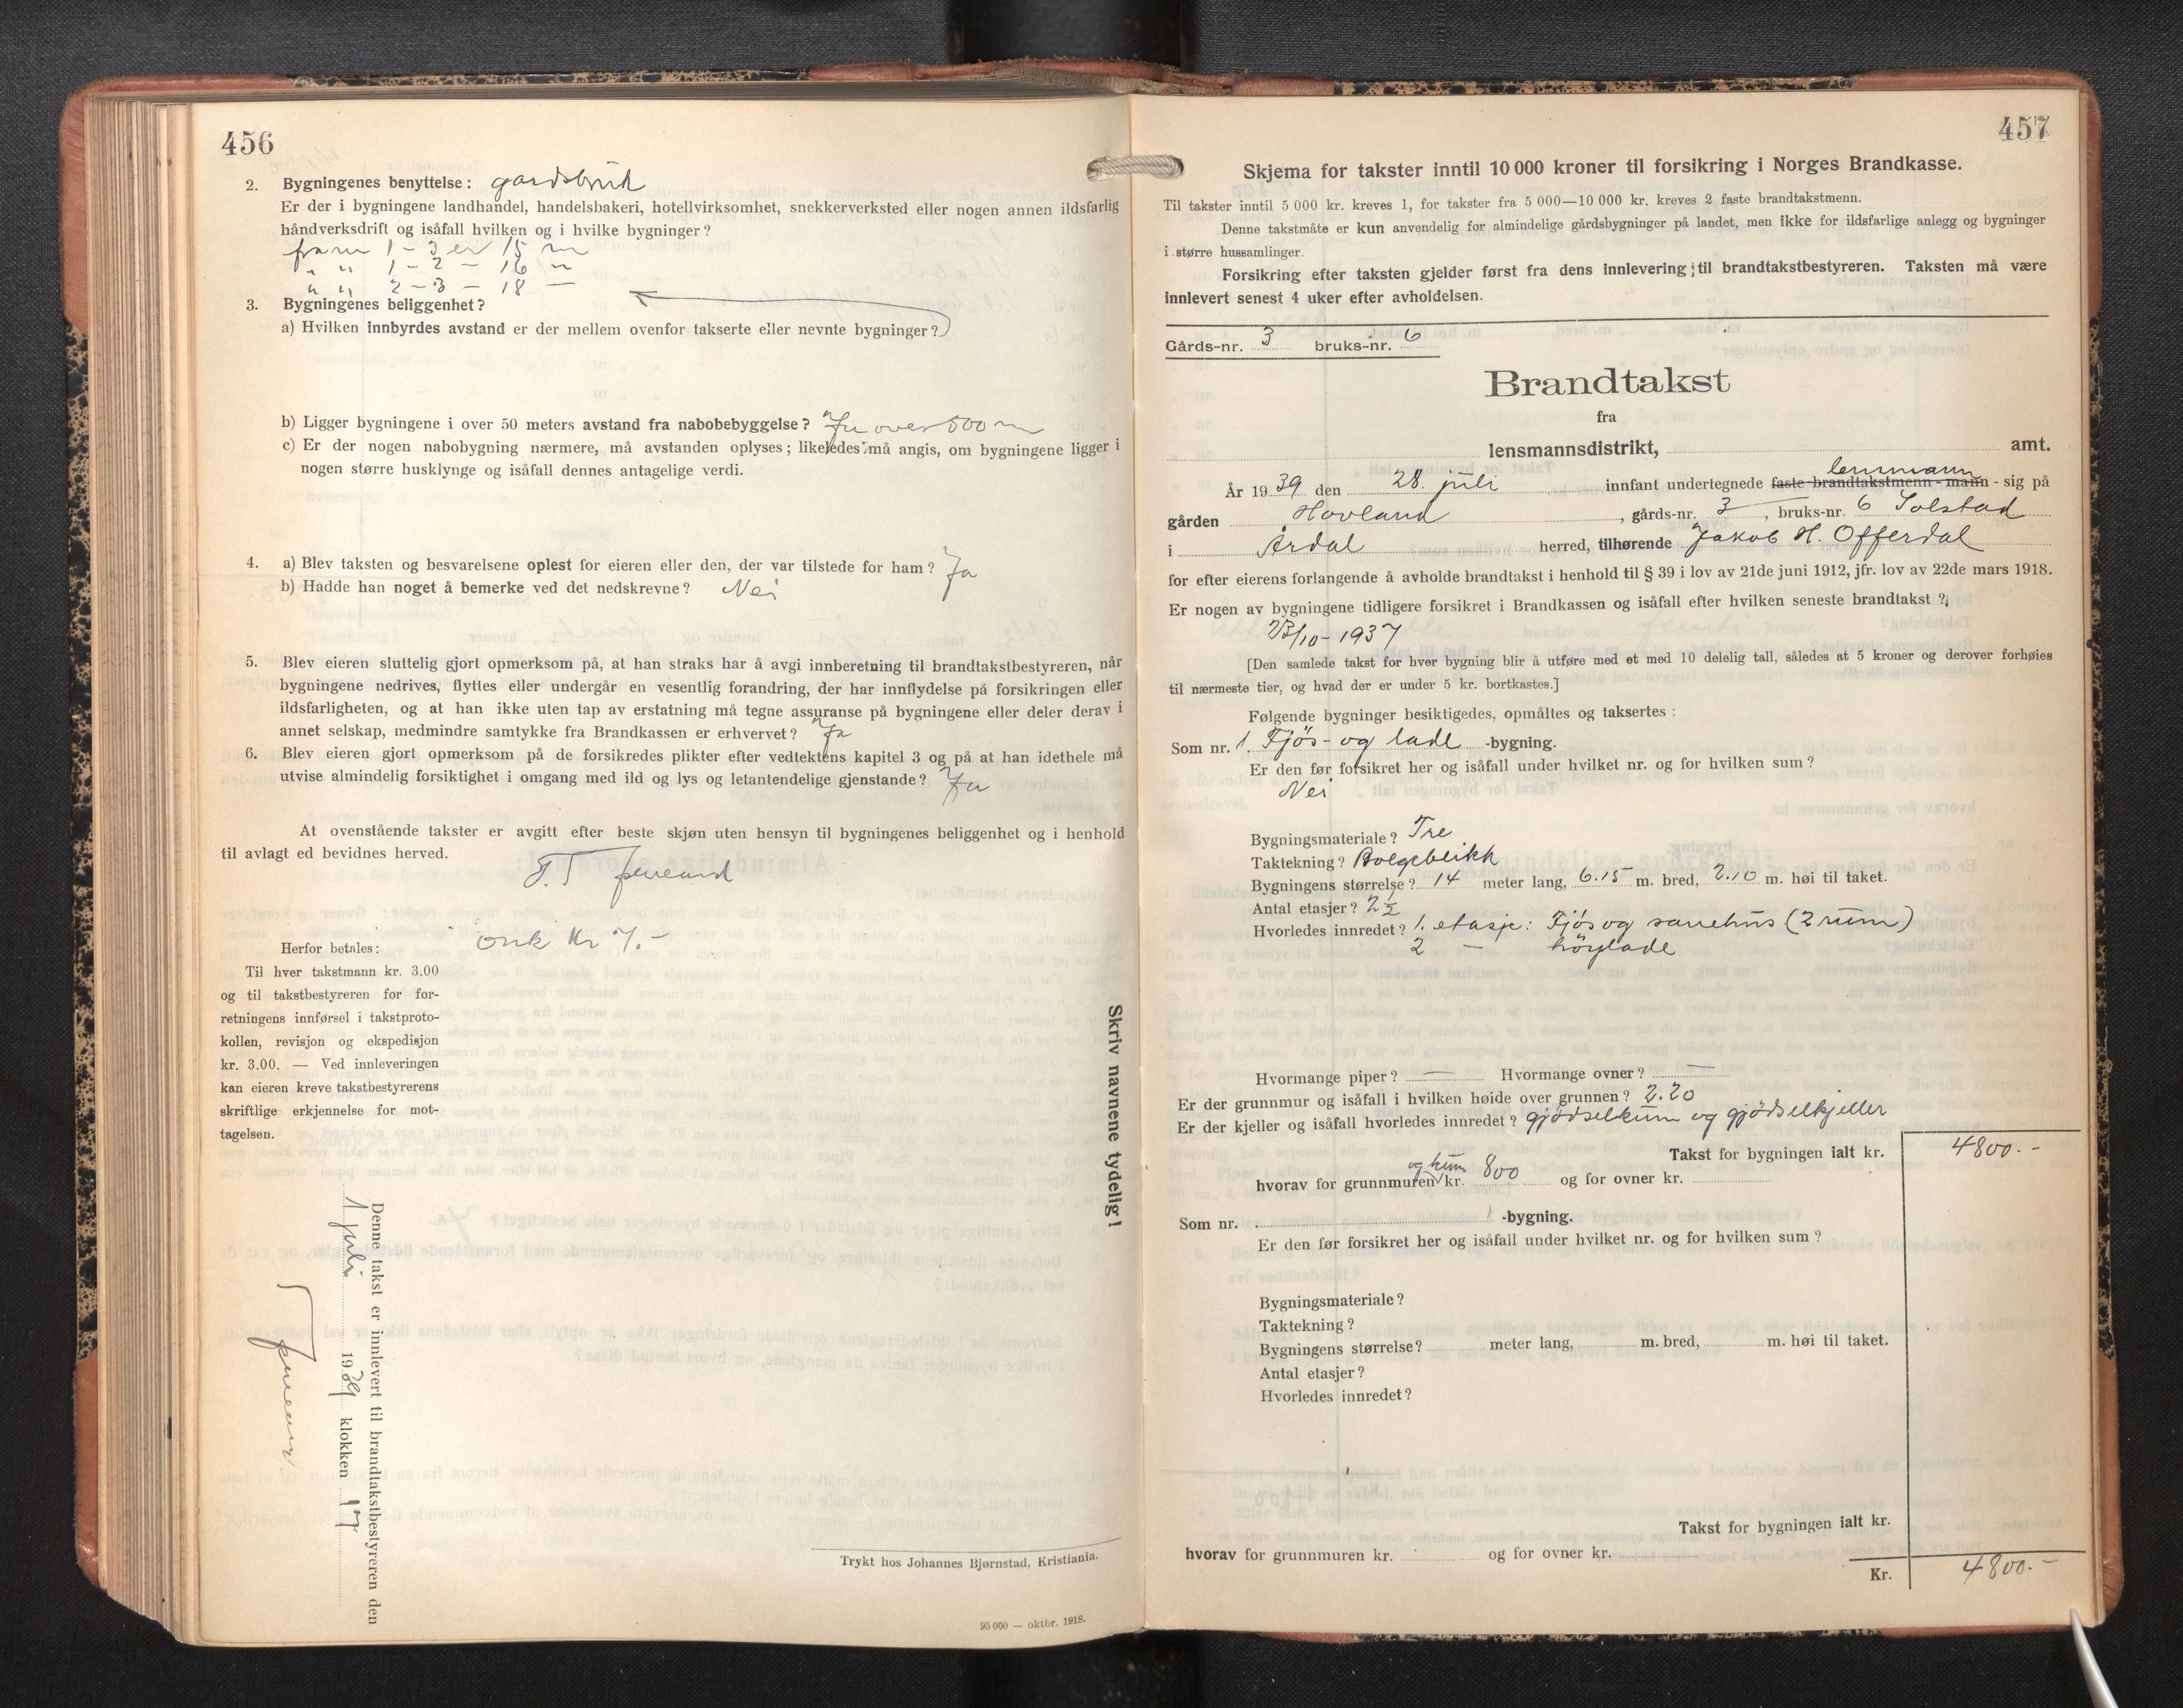 456
2. Bygningenes benyttelse: gardsbruk
Er der i bygningene landhandel, handelsbakeri, hotellvirksomhet, snekkerverksted eller nogen annen ildsfarlig
håndverksdrift og isåfall hvilken og i hvilke bygninger?
fra nr 1 - 3 er 15 m
" " 1 - 2 - 16 m
" " 2 - 3 - 18 -
3. Bygningenes beliggenhet?
a) Hvilken innbyrdes avstand er der mellem ovenfor takserte eller nevnte bygninger?
b) Ligger bygningene i over 50 meters avstand fra nabobebyggelse? Ja over 500 m
c) Er der nogen nabobygning nærmere, må avstanden oplyses; likeledes må angis, om bygningene ligger i
nogen større husklynge og isåfall dennes antagelige verdi.
4. a) Blev taksten og besvarelsene oplest for eieren eller den, der var tilstede for ham? Ja
b) Hadde han noget å bemerke ved det nedskrevne? Nei
5. Blev eieren sluttelig gjort opmerksom på, at han straks har å avgi innberetning til brandtakstbestyreren, når
bygningene nedrives, flyttes eller undergår en vesentlig forandring, der har innflydelse på forsikringen eller
ildsfarligheten, og at han ikke uten tap av erstatning må tegne assuranse på bygningene eller deler derav i
annet selskap, medmindre samtykke fra Brandkassen er erhvervet? Ja
6. Blev eieren gjort opmerksom på de forsikredes plikter efter vedtektens kapitel 3 og på at han idethele må
utvise almindelig forsiktighet i omgang med ild og lys og letantendelige gjenstande? Ja
At ovenstående takster er avgitt efter beste skjøn uten hensyn til bygningenes beliggenhet og i henhold
til avlagt ed bevidnes herved.
Kr 7.-
Herfor betales:
Til hver takstmann kr. 3.00
og til takstbestyreren for for-
retningens innførsel i takstproto-
kollen, revisjon og ekspedisjon
kr. 3.00. — Ved innleveringen
kan eieren kreve takstbestyrerens
skriftlige erkjennelse for mot-
tagelsen.
Skriv navnene tydelig!
Denne takst er innlevert til brandtakstbestyreren den
1 juli 1939 klokken 17
Trykt hos Johannes Bjørnstad, Kristiania.
95 000 — oktbr. 1918.
457
Skjema for takster inntil 10 000 kroner til forsikring i Norges Brandkasse.
Til takster inntil 5 000 kr. kreves 1, for takster fra 5 000—10 000 kr. kreves 2 faste brandtakstmenn.
Denne takstmåte er kun anvendelig for almindelige gårdsbygninger på landet, men ikke for ildsfarlige anlegg og bygninger
i større hussamlinger.
Forsikring efter taksten gjelder først fra dens innlevering til brandtakstbestyreren. Taksten må være
innlevert senest 4 uker efter avholdelsen.
Gårds-nr. 3 bruks-nr. 6
Brandtakst
fra
lensmannsdistrikt, amt.
lensmann
År 1939 den 28. juli innfant undertegnede faste brandtakstmenn - mann - sig på
gården Hovland, gårds-nr. 3, bruks-nr. 6 Solstad
i Årdal herred, tilhørende Jakob H. Offerdal
for efter eierens forlangende å avholde brandtakst i henhold til § 39 i lov av 21de juni 1912, jfr. lov av 22de mars 1918.
Er nogen av bygningene tidligere forsikret i Brandkassen og isåfall efter hvilken seneste brandtakst?
23/10-1937
[Den samlede takst for hver bygning blir å utføre med et med 10 delelig tall, således at 5 kroner og derover forhøies
til nærmeste tier, og hvad der er under 5 kr. bortkastes.]
Følgende bygninger besiktigedes, opmåltes og taksertes:
Som nr. 1. Fjøs- og lade -bygning.
Er den før forsikret her og isåfall under hvilket nr. og for hvilken sum?
Nei
Bygningsmateriale? Tre
Taktekning? Bølgeblikk
Bygningens størrelse? 14 meter lang, 6.15 m. bred, 2.10 m. høi til taket.
Antal etasjer? 2½
Hvorledes innredet? 1. etasje: Fjøs og sauehus (2 rum)
2 - høylade
Hvormange piper? — Hvormange ovner? —
Er der grunnmur og isåfall i hvilken høide over grunnen? 2.20
Er der kjeller og isåfall hvorledes innredet? gjødselkum og gjødselkjeller
Takst for bygningen ialt kr. 4800.-
og kum
hvorav for grunnmuren kr. 800 og for ovner kr.
Som nr. -bygning.
Er den før forsikret her og isåfall under hvilket nr. og for hvilken sum?
Bygningsmateriale?
Taktekning?
Bygningens størrelse? meter lang, m. bred, m. høi til taket.
Antal etasjer?
Hvorledes innredet?
Takst for bygningen ialt kr.
hvorav for grunnmuren kr. og for ovner kr.
Kr. 4800.-